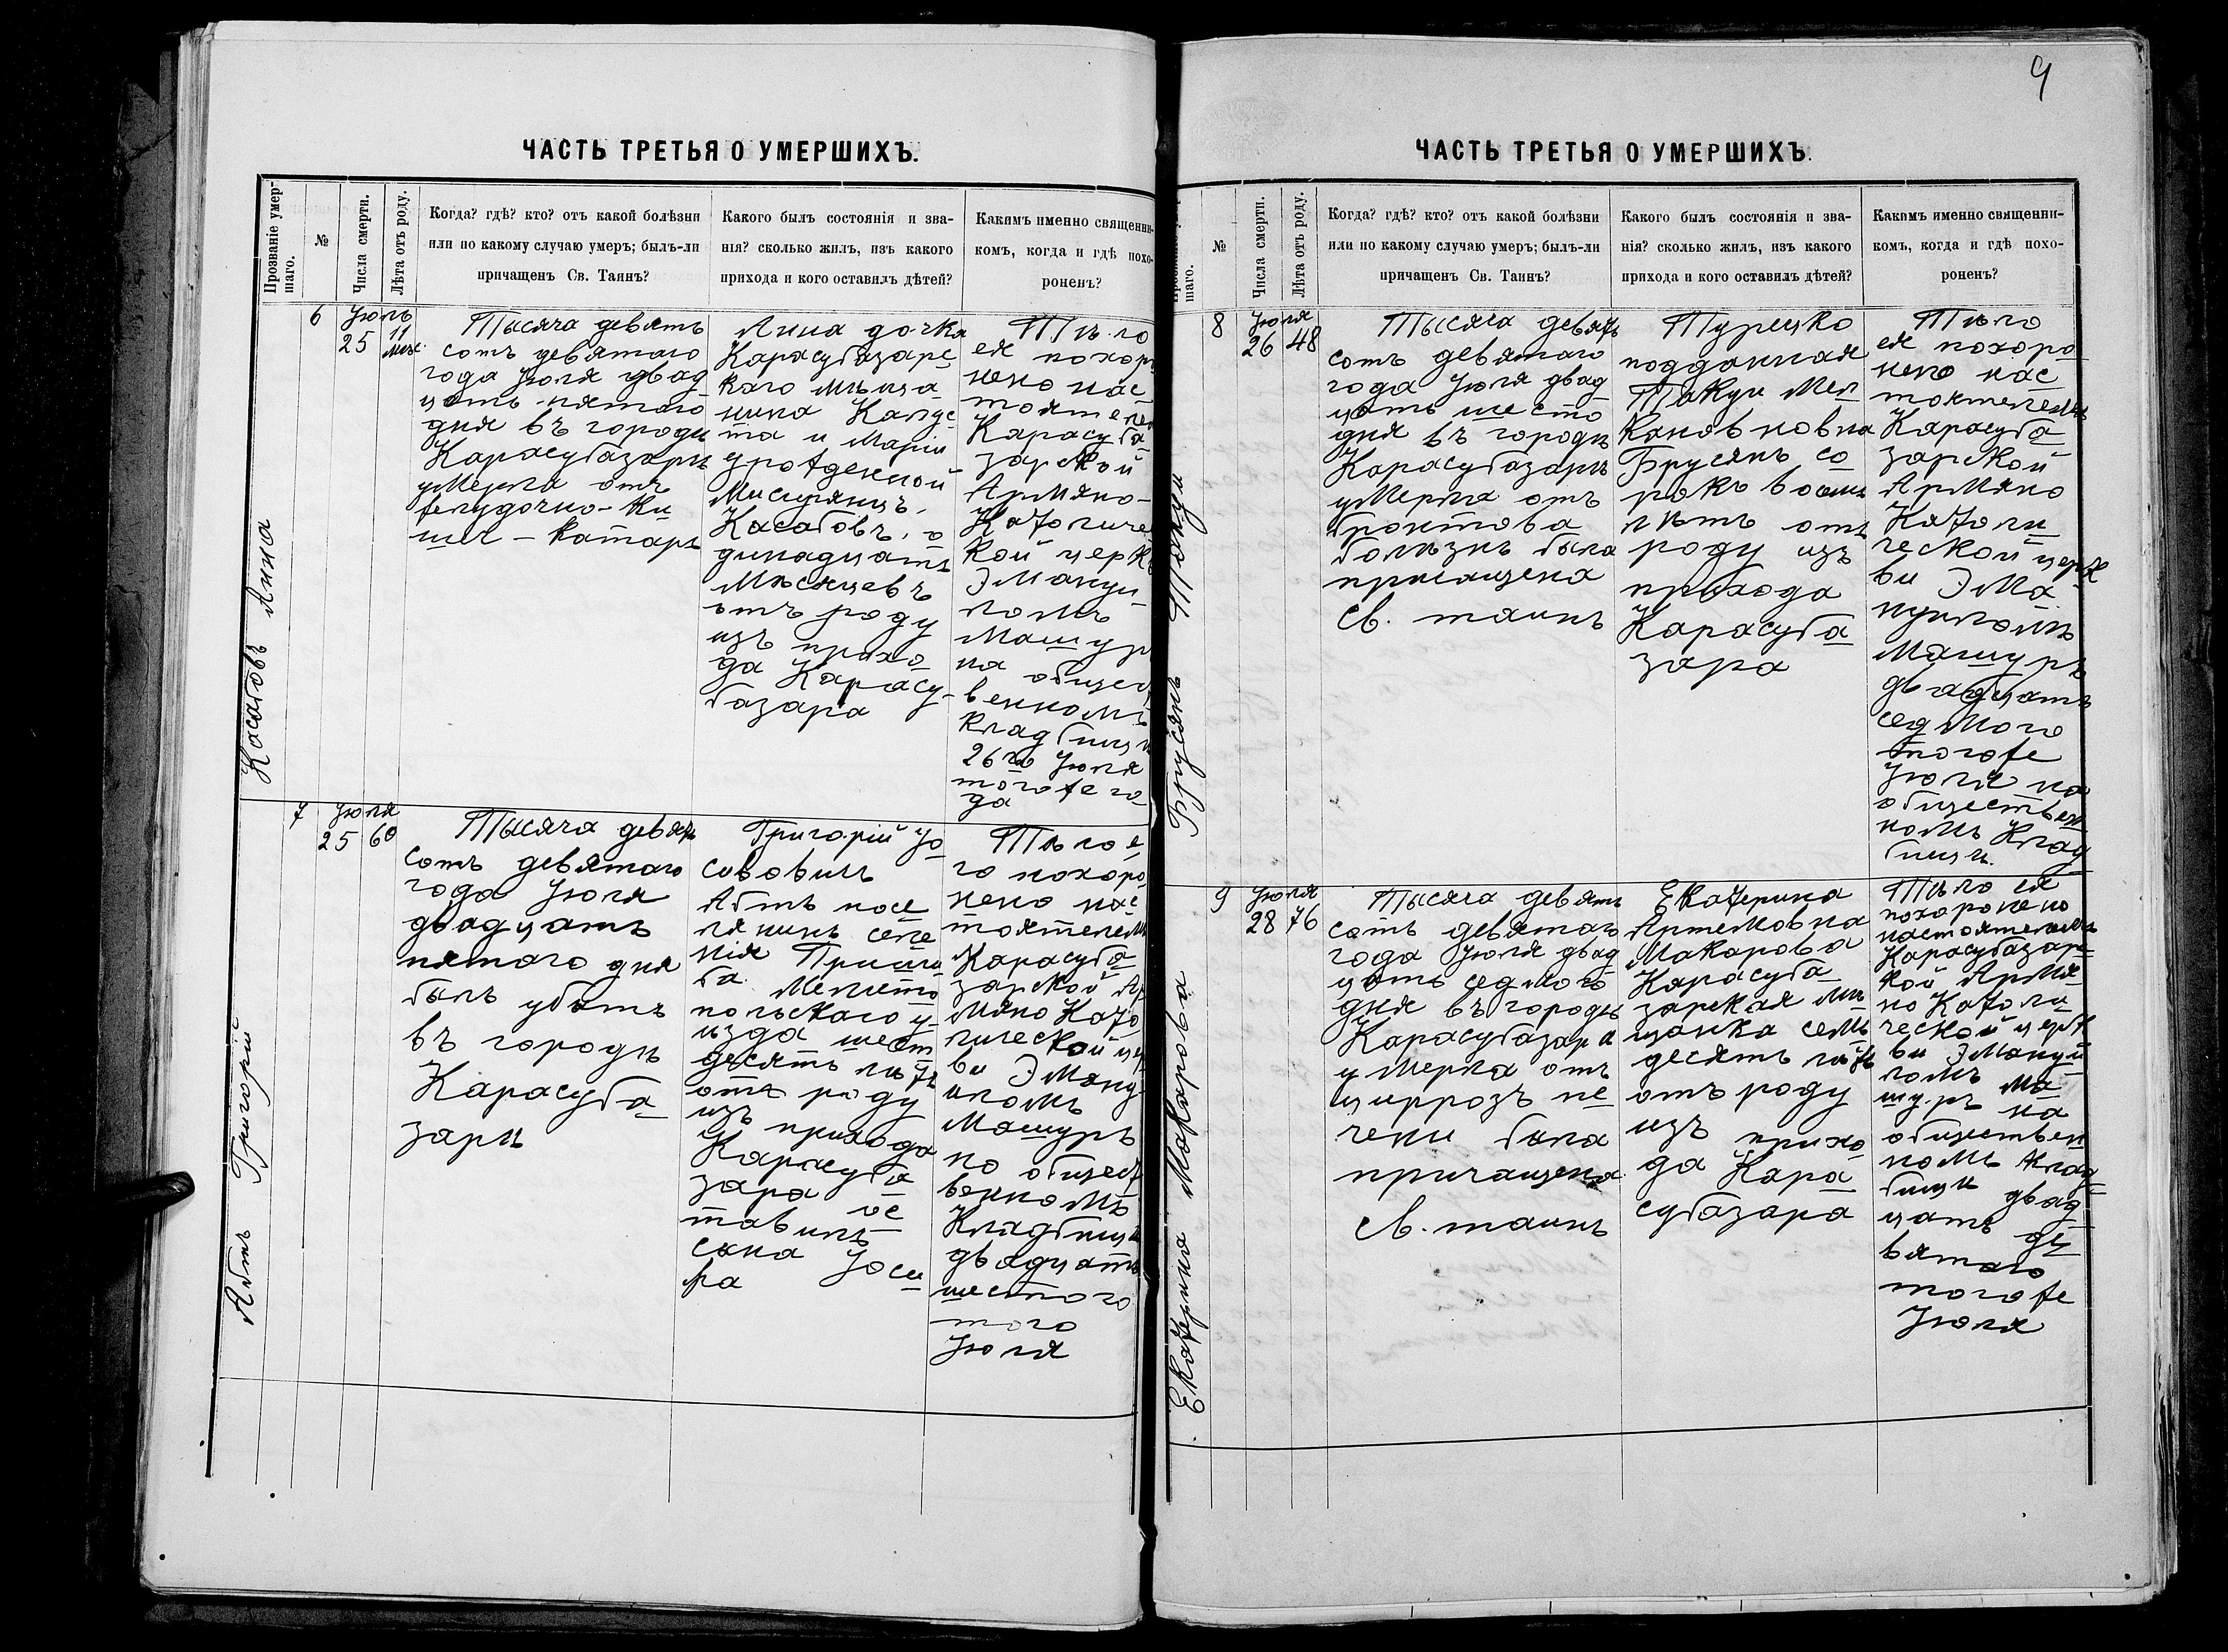 ЧАСТЬ ТРЕТЬЯ О УМЕРШИХЪ.
Прозваніе умер-
шаго.
№
Числа смерти.
Лѣта отъ роду.
Когда? гдѣ? кто? отъ какой болѣзни
или по какому случаю умеръ; былъ-ли
причащенъ Св. Таинъ?
Какого былъ состоянія и зва-
нія? сколько жилъ, изъ какого
прихода и кого оставилъ дѣтей?
Какимъ именно священни-
комъ, когда и гдѣ похо-
роненъ?
Касабовъ Анна
6
Іюль
25
11
мѣс.
Тысяча девять
сотъ девятаго
года Іюля двад
цать пятаго
дня въ городѣ
Карасубазарѣ
умерла отъ
желудочно-ки
шеч-катаръ
Анна дочка
Карасубазарс
каго мѣща
нина Карпе
та и Маріи
урожденной
Мисирянцъ,
Касабовъ, о
динадцать
мѣсяцевъ
отъ роду
изъ прихо
да Карасу-
базара
Тѣло
ея похор
нено нас
тоятелем
Карасуба
зарской
Армяно-
Католиче
кой церк
Эмануи
ломъ
Машур
на общес
венномъ
кладбищѣ
26го Іюля
тогоже го
да
Абтъ Григорій
7
Іюля
25
60
Тысяча девять
сотъ девятаго
года Іюля
двадцать
пятаго дня
былъ убитъ
въ городѣ
Карасуба
зарѣ
Григорій Іо
сововичъ
Абтъ посе
лянинъ селе
нія Пришы
ба Мелито
польскаго у-
изда шест
десять лѣтъ
отъ роду
изъ прихода
Карасуба
зара ос
тавилъ
сына Іоси
фа
Тѣло е
го похоро
нено нас
тоятелемъ
Карасуба
зарской Ар
мяно Като
лической цер
ви Эману
иломъ
Машуръ
на общест
венномъ
Кладбищѣ
двадцать
шестого
того
Іюля
9
ЧАСТЬ ТРЕТЬЯ О УМЕРШИХЪ.
шаго.
№
Числа смерти.
Лѣта отъ роду.
Когда? гдѣ? кто? отъ какой болѣзни
или по какому случаю умеръ; былъ-ли
причащенъ Св. Таинъ?
Какого былъ состоянія и зва-
нія? сколько жилъ, изъ какого
прихода и кого оставилъ дѣтей?
Какимъ именно священни-
комъ, когда и гдѣ похо-
роненъ?
Брусянъ Такуи
8
Іюля
26
48
Тысяча девять
сотъ девятаго
года Іюля двад
цать шесто
дня въ городѣ
Карасубазарѣ
умерла отъ
броктова
болѣзнь была
причащена
Св. таинъ
Турецко
подданная
Такуи Мел
Коновновна
Брусянъ со
рокъ восемь
лѣтъ отъ
роду изъ
прихода
Карасуба
зара
Тѣло
ея похоро
нено нас
тоятелемъ
Карасуба
зарской
Армяно
Католи
ческой церк
ви Эма
нуиломъ
Машуръ
двадцать
седмого
тогоже
Іюля на
обществен
номъ клад
бищѣ.
Екатерина Макарова
9
Іюля
28
76
Тысяча девять
сотъ девятаго
года Іюля двад
цать седмого
дня въ городѣ
Карасубазара
умерла отъ
циррозъ пе
чени была
причащена
Св. таинъ
Екатерина
Артемовна
Макарова
Карасуба
зарская мѣ
щанка семь
десять лѣтъ
отъ роду
изъ прихо
да Кара
субазара
Тѣло ея
похоронено
настоятелемъ
Карасубазар
кой Армя
но Католи
ческой церк
ви Эмануи
ломъ Ма
шуръ на
обществен
номъ клад
бищѣ двад
цать де
вятаго
тогоже
Іюля